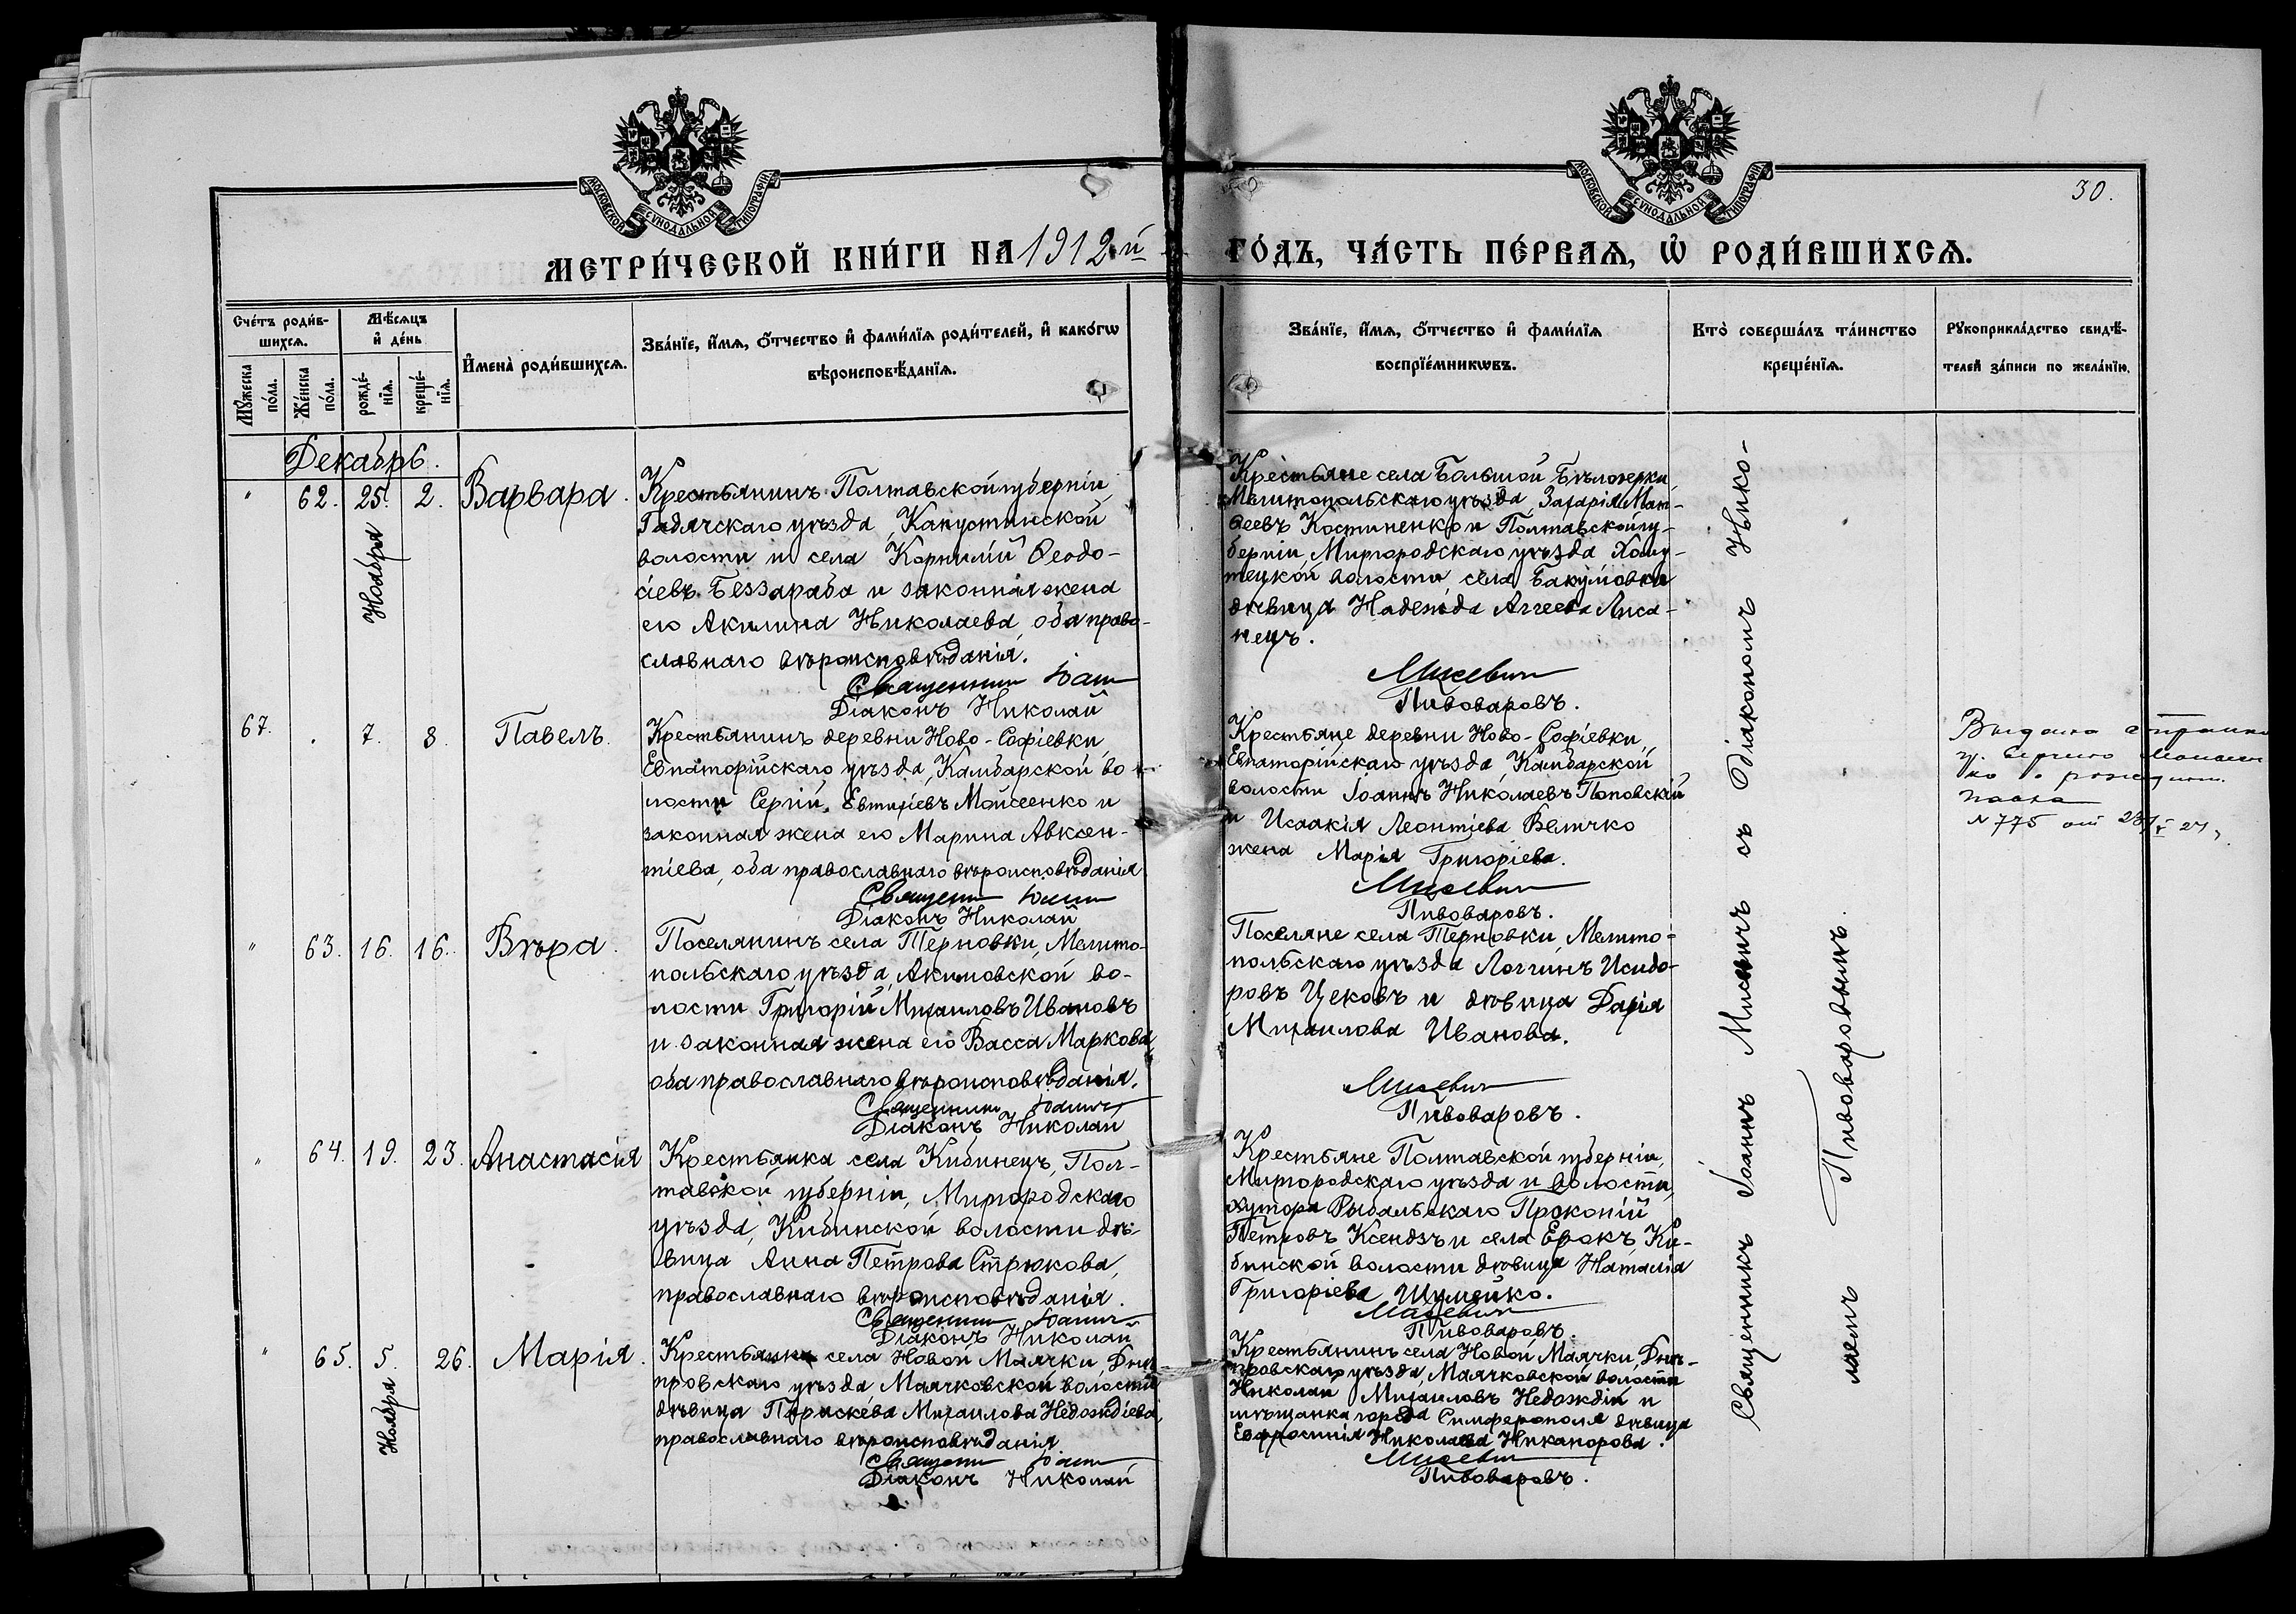 МОСКОВСКОЙ СУНОДАЛЬНОЙ ТИПОГРАФІИ
МОСКОВСКОЙ СУНОДАЛЬНОЙ ТИПОГРАФІИ
30.
МЕТРИ́ЧЕСКОЙ КНИ́ГИ НА 1912й ГО́ДЪ, ЧА́СТЬ ПЕ́РВАѦ, Ѡ҆ РОДИ́ВШИХСѦ.
Сче́тъ роди́в-
шихсѧ.
Мꙋ́жеска по́ла.
Же́нска по́ла.
Мѣ́сѧцъ
и҆ де́нь
рожде́-
нїѧ.
креще́-
нїѧ.
И҆мена̀ роди́вшихсѧ.
Зва́нїе, и҆́мѧ, ѻ҆́тчество и҆ фами́лїѧ роди́телей, и҆ како́гѡ
вѣроисповѣ́данїѧ.
Зва́нїе, и҆́мѧ, ѻ҆́тчество и҆ фами́лїѧ
воспрїе́мникѡвъ.
Кто̀ соверша́лъ та́инство
креще́нїѧ.
Рꙋкоприкла́дство свидѣ́-
телей за́писи по жела́нїю.
Декабрь.
" 62. 25. 2. Варвара.
Ноября
Крестьянинъ Полтавской губерніи,
Гадячскаго уѣзда, Капустинской
волости и села Корнилій Ѳеодо-
сіевъ Беззараба и законная жена
его Акилина Николаева, оба право-
славнаго вѣроисповѣданія.
Священникъ Іоаннъ
Діаконъ Николай
Крестьяне села Большой Бѣлозерки,
Мелитопольскаго уѣзда, Захарія Мат-
ѳеевъ Костиненко и Полтавской гу-
берніи, Миргородскаго уѣзда Хому-
тецкой волости, села Бакумовки
дѣвица Надежда Аггеева Лиса-
нецъ.
Мисевичъ
Пивоваровъ.
67. . 7. 8. Павелъ.
Крестьянинъ деревни Ново-Софіевки,
Евпаторійскаго уѣзда, Камбарской во-
лости Сергій Евтихіевъ Мойсеенко и
законная жена его Марина Авксен-
тіева, оба православнаго вѣроисповѣданія
Священникъ Іоаннъ
Діаконъ Николай
Крестьяне деревни Ново-Софіевки,
Евпаторійскаго уѣзда, Камбарской
волости Іоаннъ Николаевъ Поповскій
и Исаакія Леонтіева Величко
жена Марія Григоріева.
Мисевичъ
Пивоваровъ.
Выдана справка
гр. Сергею Моисеен
ко о рожден.
Павла
№ 775 от 23/V 24
" 63. 16. 16. Вѣра.
Поселянинъ села Терновки, Мелито-
польскаго уѣзда, Акимовской во-
лости Григорій Михаиловъ Ивановъ
и законная жена его Васса Маркова,
оба православнаго вѣроисповѣданія.
Священникъ Іоаннъ
Діаконъ Николай
Поселяне села Терновки, Мелито-
польскаго уѣзда Логгинъ Исидо-
ровъ Цековъ и дѣвица Дарія
Михаилова Иванова.
Мисевичъ
Пивоваровъ.
" 64. 19. 23. Анастасія
Крестьянка села Кибинецъ, Пол-
тавской губерніи, Миргородскаго
уѣзда, Кибинской волости дѣ-
вица Анна Петрова Стрюкова,
православнаго вѣроисповѣданія.
Священникъ Іоаннъ
Діаконъ Николай
Крестьяне Полтавской губерніи,
Миргородскаго уѣзда и волости,
хутора Рыбальскаго Прокопій
Петровъ Ксендзъ и села Ерокъ, Ки-
бинской волости дѣвица Наталія
Григоріева Шумейко.
Мисевичъ
Пивоваровъ.
" 65. 5. 26. Марія.
Ноября
Крестьянка села Новой Маячки, Днѣ-
провскаго уѣзда, Маячковской волости
дѣвица Параскева Михаилова Недождіева,
православнаго вѣроисповѣданія.
Священникъ Іоаннъ
Діаконъ Николай
Крестьянинъ села Новой Маячки, Днѣ-
провскаго уѣзда, Маячковской волости
Николай Михаиловъ Недождій и
мѣщанка города Симферополя дѣвица
Евфросинія Николаева Никанорова.
Мисевичъ
Пивоваровъ.
Священникъ Іоаннъ Мисевичъ съ Діакономъ Нико-
лаемъ Пивоваровымъ.